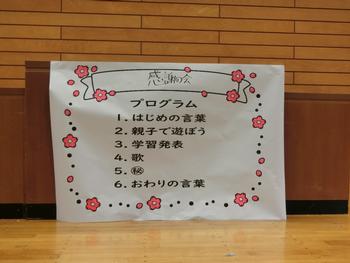 感謝の会
プログラム
1. はじめの言葉
2. 親子で遊ぼう
3. 学習発表
4. 歌
5. ㊙
6. おわりの言葉